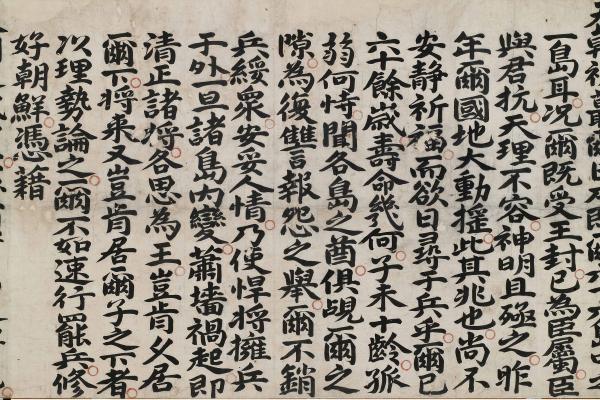 一島耳況爾既受王封已為臣屬臣
與君抗天理不容神明且殛之昨
年爾國地大動搖此其兆也尚不
安靜祈福而欲日尋于兵乎爾已
六十餘歲壽命幾何子未十齡孤
弱何恃聞各島之酋俱覘爾之
隙為復讐報怨之舉爾不銷
兵綏衆安妥人情乃使悍將擁兵
于外一旦諸島內變蕭墻禍起即
清正諸將各思為王豈肯久居
爾下將來又豈肯居爾子之下者
以理勢論之爾不如速行罷兵修
好朝鮮憑藉